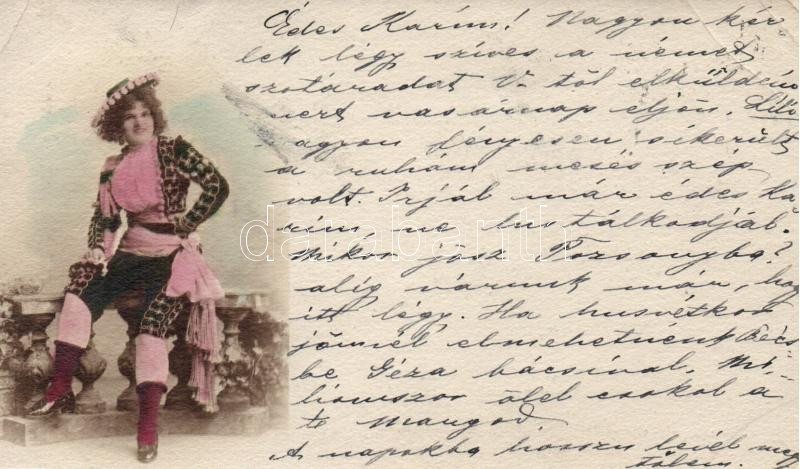 Édes Karim! Nagyon kér
lek légy szíves a német
szótáradat V. től elküldeni
mert vasárnap eljön.
agyon fényesen sikerült
a ruhám mesés szép
volt. Irjál már édes Ka
rim, ne lustálkodjál.
Mikor jösz Pozsonyba?
alig várunk már, hog
itt légy. Ha husvétkor
jönnél elmehetnénk Bécs
be Géza bácsival. Mi
liomszor ölel csokol a
te Mangod
A napokba hosszu levél meg
tőlem
darabanth